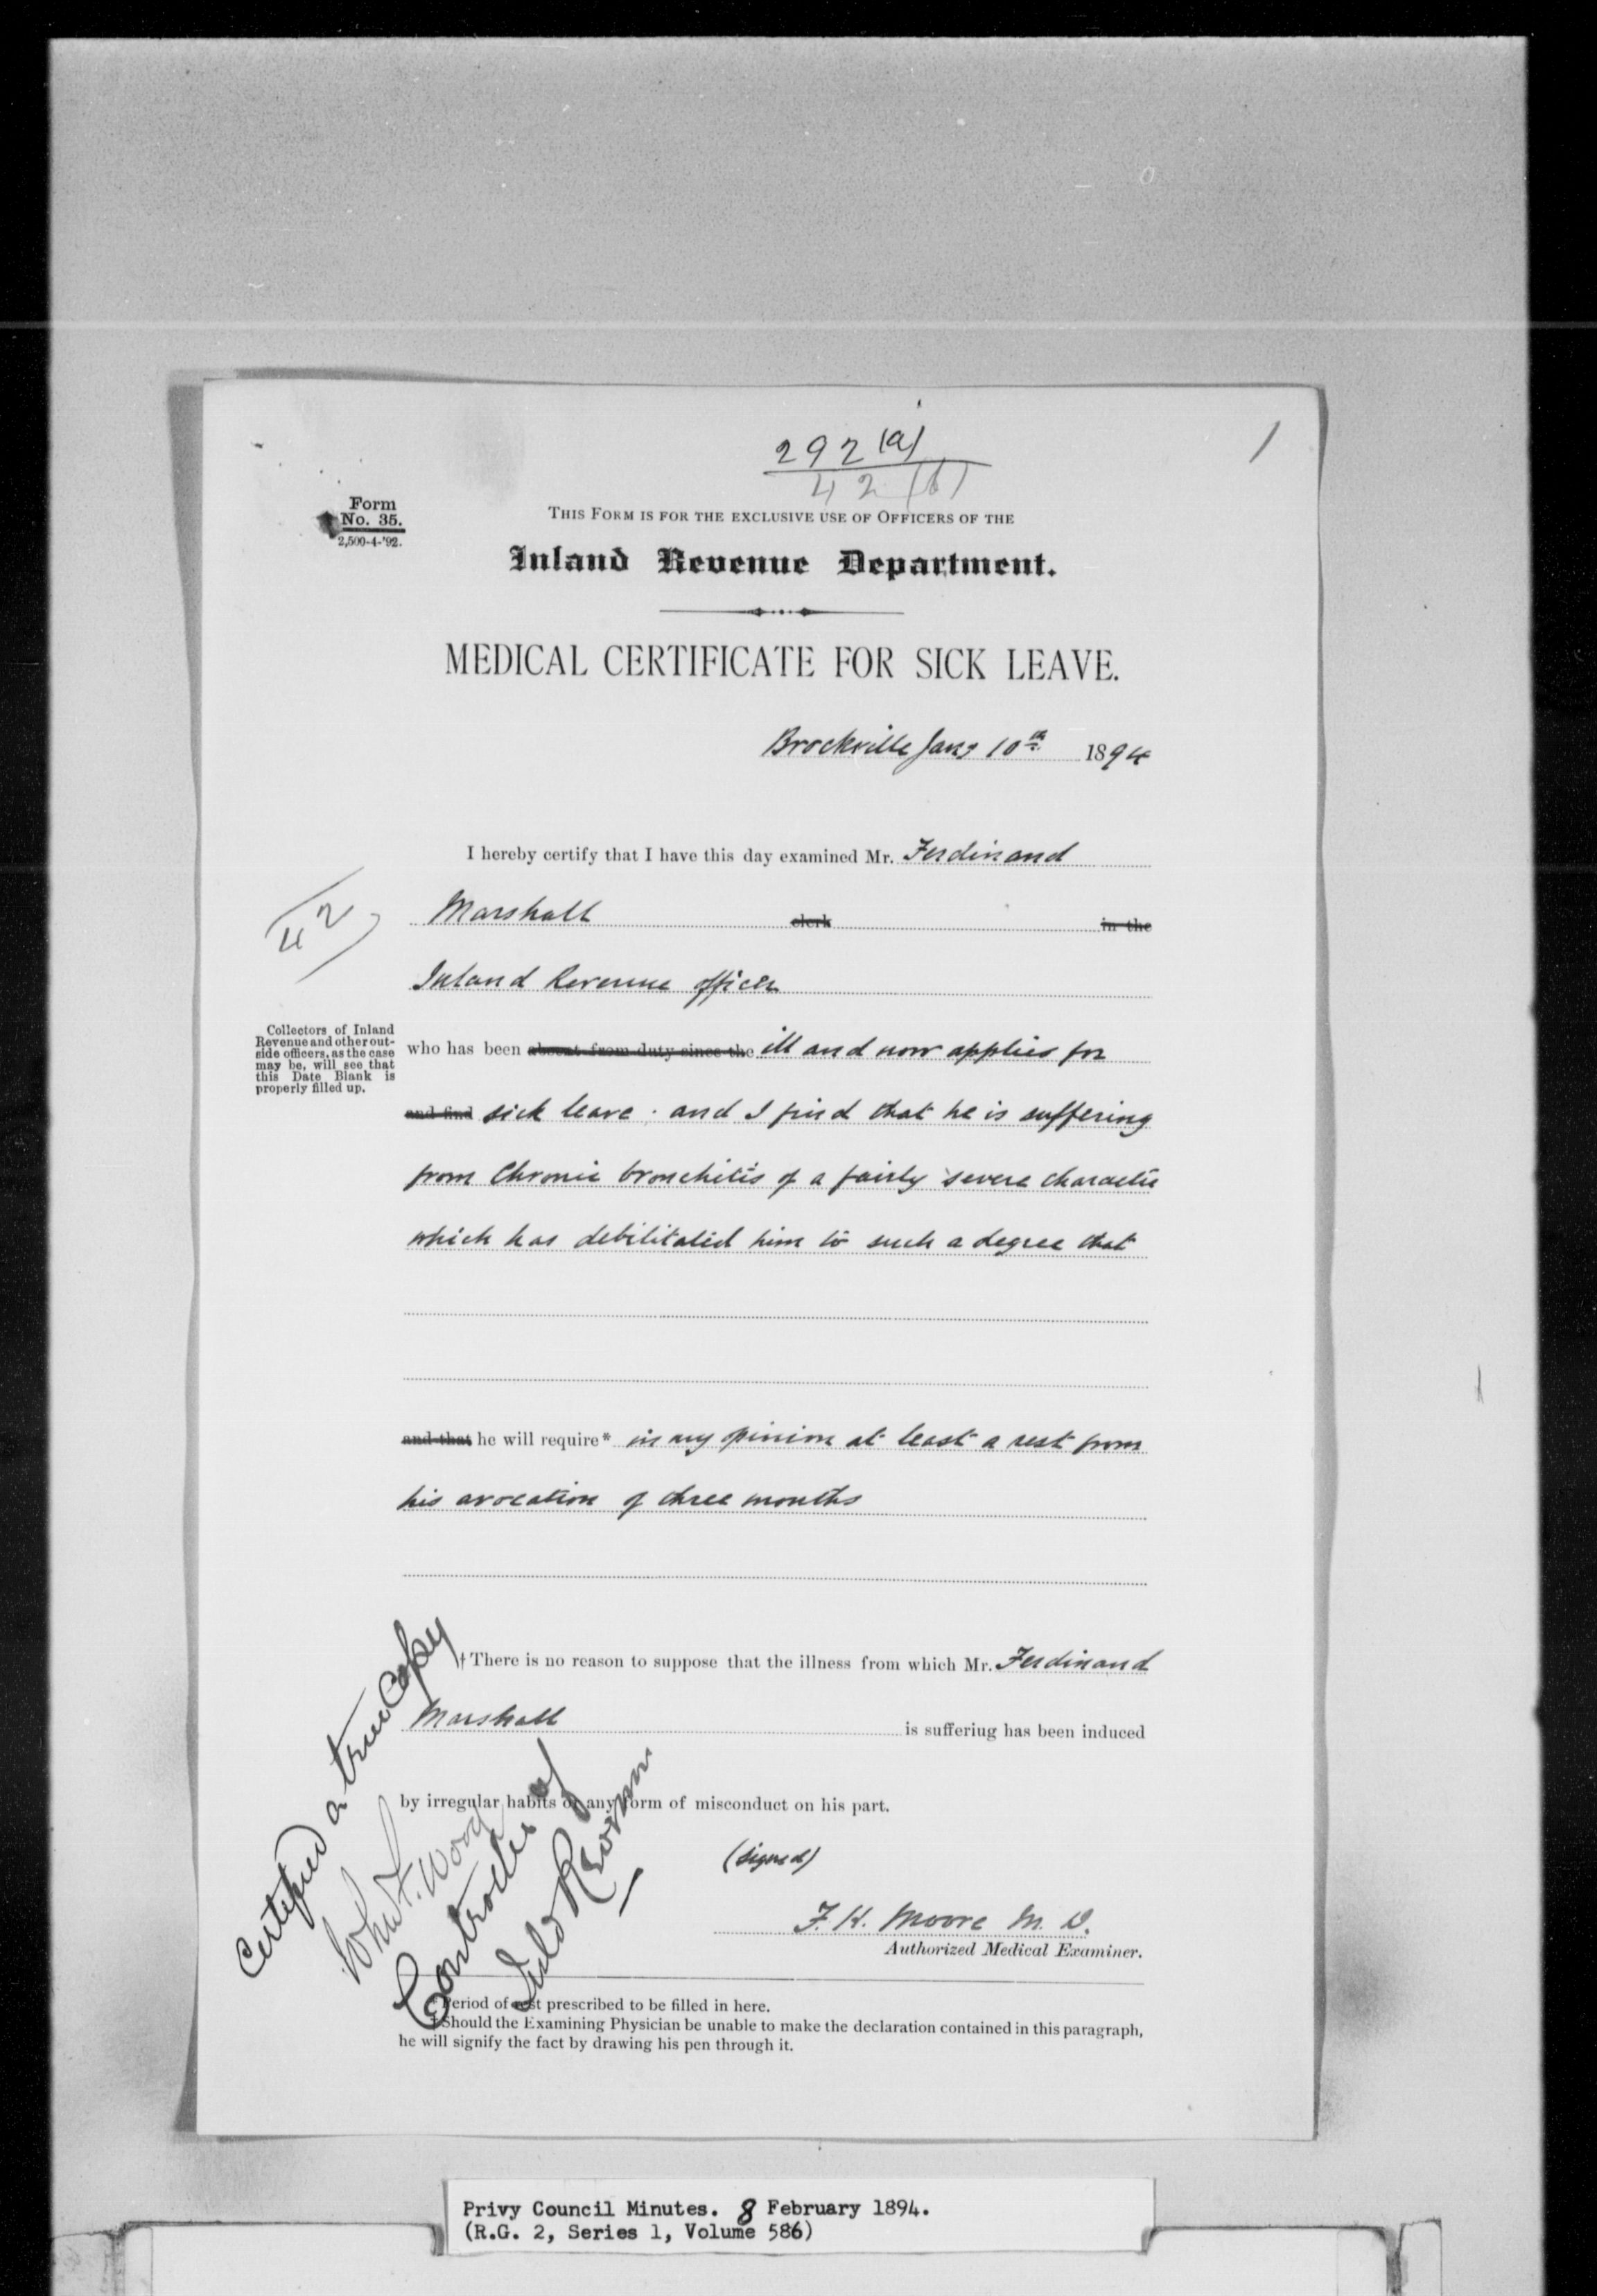 292 (a)
42 (b)
1
Form
No. 35.
2,500-4-'92.
THIS FORM IS FOR THE EXCLUSIVE USE OF OFFICERS OF THE
Inland Revenue Department.
MEDICAL CERTIFICATE FOR SICK LEAVE.
Brockville Jany 10th 1894
I hereby certify that I have this day examined Mr. Ferdinand
Marshall clerk in the
42
Inland Revenue officer
Collectors of Inland
Revenue and other out-
side officers, as the case
may be, will see that
this Date Blank is
properly filled up.
who has been absent from duty since the ill and now applies for
and find sick leave. and I find that he is suffering
from Chronic bronchitis of a fairly severe character
which has debilitated him to such a degree that
and that he will require* in my opinion at least a rest from
his avocation of three months
† There is no reason to suppose that the illness from which Mr. Ferdinand
Marshall is sufferiug has been induced
by irregular habits or any form of misconduct on his part.
(signed)
F. K. Moore M. D.
Authorized Medical Examiner.
Certified a true Copy
Controller of
Inld Revenue
* Period of rest prescribed to be filled in here.
† Should the Examining Physician be unable to make the declaration contained in this paragraph,
he will signify the fact by drawing his pen through it.
Privy Council Minutes. 8 February 1894.
(R.G. 2, Series 1, Volume 586)